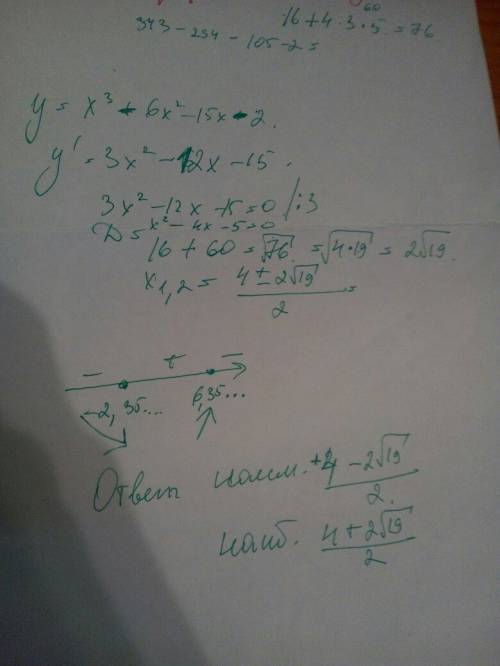 16 + 4 · 3 · 5 = 76
60
343 - 294 - 105 - 2 =
y = x³ - 6x² - 15x - 2.
y' = 3x² - 12x - 15.
3x² - 12x - 15 = 0 /:3
x² - 4x - 5 = 0
D =
16 + 60 = √76 = √4·19 = 2√19.
x₁,₂ = (4 ± 2√19)/2 =
- + -
-2,35... 6,35...
Ответ наим. (4 - 2√19)/2.
наиб. (4 + 2√19)/2